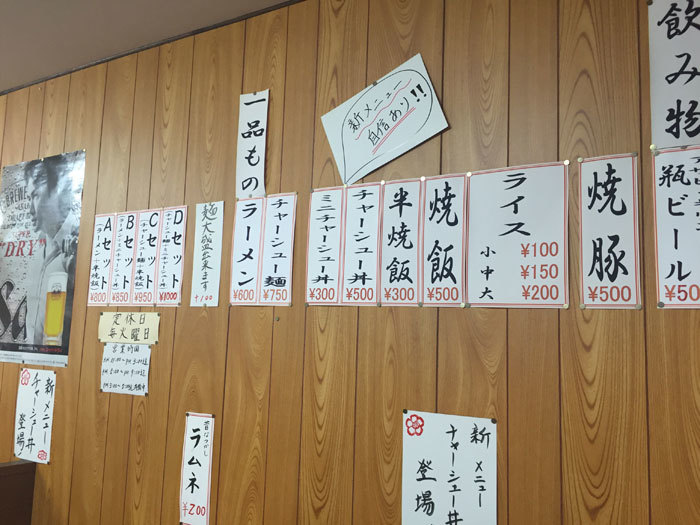 "DRY"
Aセット
ラーメン・半焼飯
¥800
Bセット
¥850
Cセット
¥950
Dセット
¥1000
麺大盛出来ます
+100
一品もの
ラーメン
¥600
チャーシュー麺
¥750
新メニュー
自信あり!!
ミニチャーシュー丼
¥300
チャーシュー丼
¥500
半焼飯
¥300
焼飯
¥500
ライス
小 ¥100
中 ¥150
大 ¥200
焼豚
¥500
飲み物
瓶ビール
¥50
定休日
毎火曜日
営業時間
新メニュー
チャーシュー丼
登場
昔なつかし
ラムネ
¥200
新メニュー
チャーシュー丼
登場